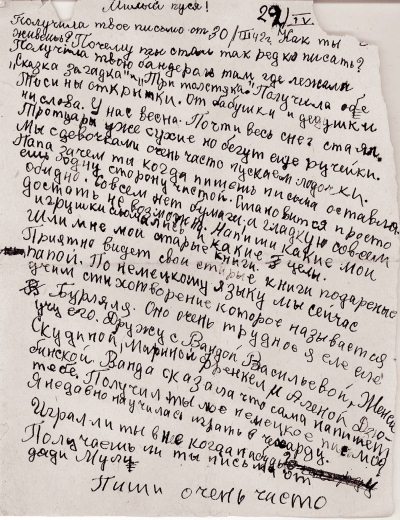 Милый пуся!
29/IV.
Получила твое письмо от 30/III 42 г. Как ты
живешь? Почему ты стал так редко писать?
Получила твою бандероль там где лежали
„Сказка загадка" и „Три толстяка". Получила обе
Тосины открытки. От бабушки и дедушки
ни слова. У нас весна. Почти весь снег стаял.
Тротуары уже сухие но бегут еще ручейки.
Мы с девочками очень часто пускаем лодочки.
Папа зачем ты когда пишешь письма оставля
ешь одну сторону чистой. Становится просто
обидно. Совсем нет бумаги. а гладкую совсем
достать не возможно. Напиши какие мои
игрушки остались и какие целы.
Шли мне мои старые книги.
Приятно видет свои старые книги подареные
папой. По немецкому языку мы сейчас
учим стихотворение которое называется
Бурляля. Оно очень трудное я еле еле
учу его. Дружу с Вандой Васильевой, Женей
Скудиной, Мариной Френкель и Агеной
бинской. Ванда сказала что сама напишет
тебе. Получил ты мое немецкое письмо
Я недавно научилась играть в чехарду.
Играл ли ты в нее когда нибудь
Получаешь ли ты письма от
дяди Мули
Пиши очень часто